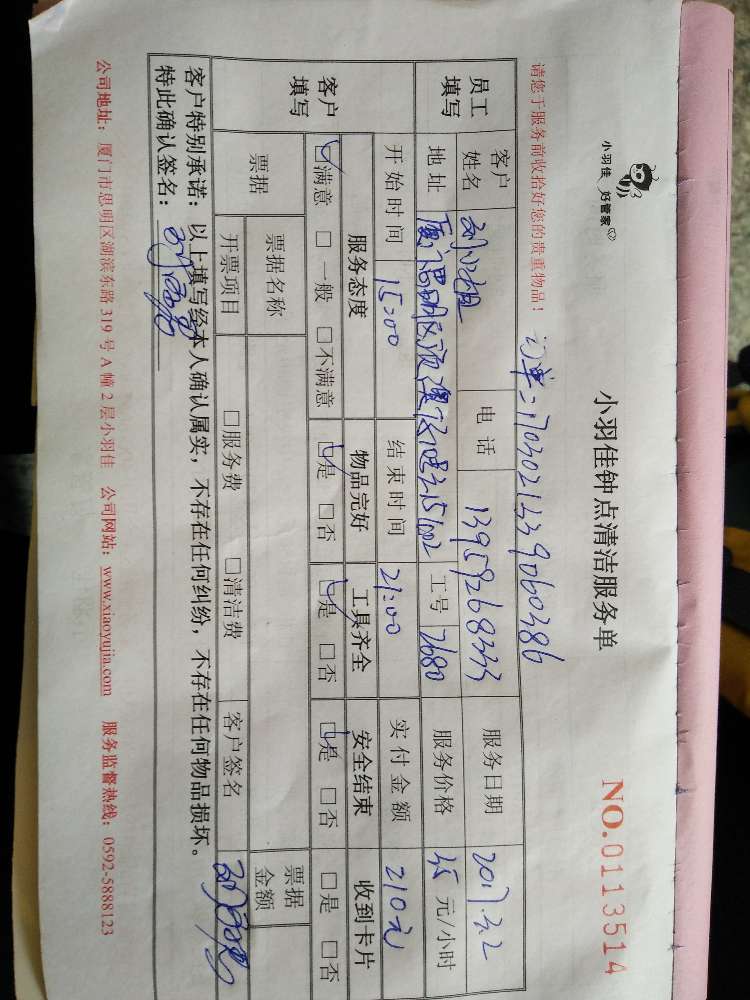 小羽佳 好管家
小羽佳钟点清洁服务单
NO.0113514
请您于服务前收拾好您的贵重物品！
订单:1703021239060386
员工填写 客户姓名 电话 13959268333 服务日期 2017.3.2
地址 工号 2680 服务价格 35 元/小时
开始时间 15:00 结束时间 21:00 实付金额 210元
客户填写 服务态度 物品完好 工具齐全 安全结束 收到卡片
☑满意 □一般 □不满意 ☑是 □否 ☑是 □否 ☑是 □否 □是 □否
票据 票据名称 票据金额
开票项目 □服务费 □清洁费 客户签名
客户特别承诺：以上填写经本人确认属实，不存在任何纠纷，不存在任何物品损坏。
特此确认签名：
公司地址：厦门市思明区湖滨东路 319 号 A 幢 2 层小羽佳 公司网站：www.xiaoyujia.com 服务监督热线：0592-5888123